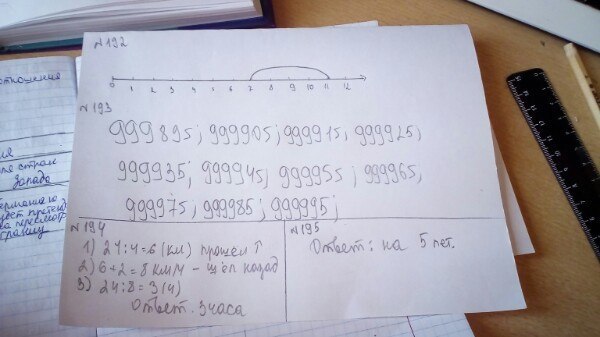 отношения
№192
0 1 2 3 4 5 6 7 8 9 10 11 12
№193
999895; 999905; 999915; 999925;
999935; 999945; 999955; 999965;
999975; 999985; 999995;
стран
Запада
№194
1) 24:4=6 (км) прошел ↑
2) 6+2=8 км/ч - шёл назад
3) 24:8=3 (ч)
Ответ. 3 часа
№195
Ответ: на 5 лет.